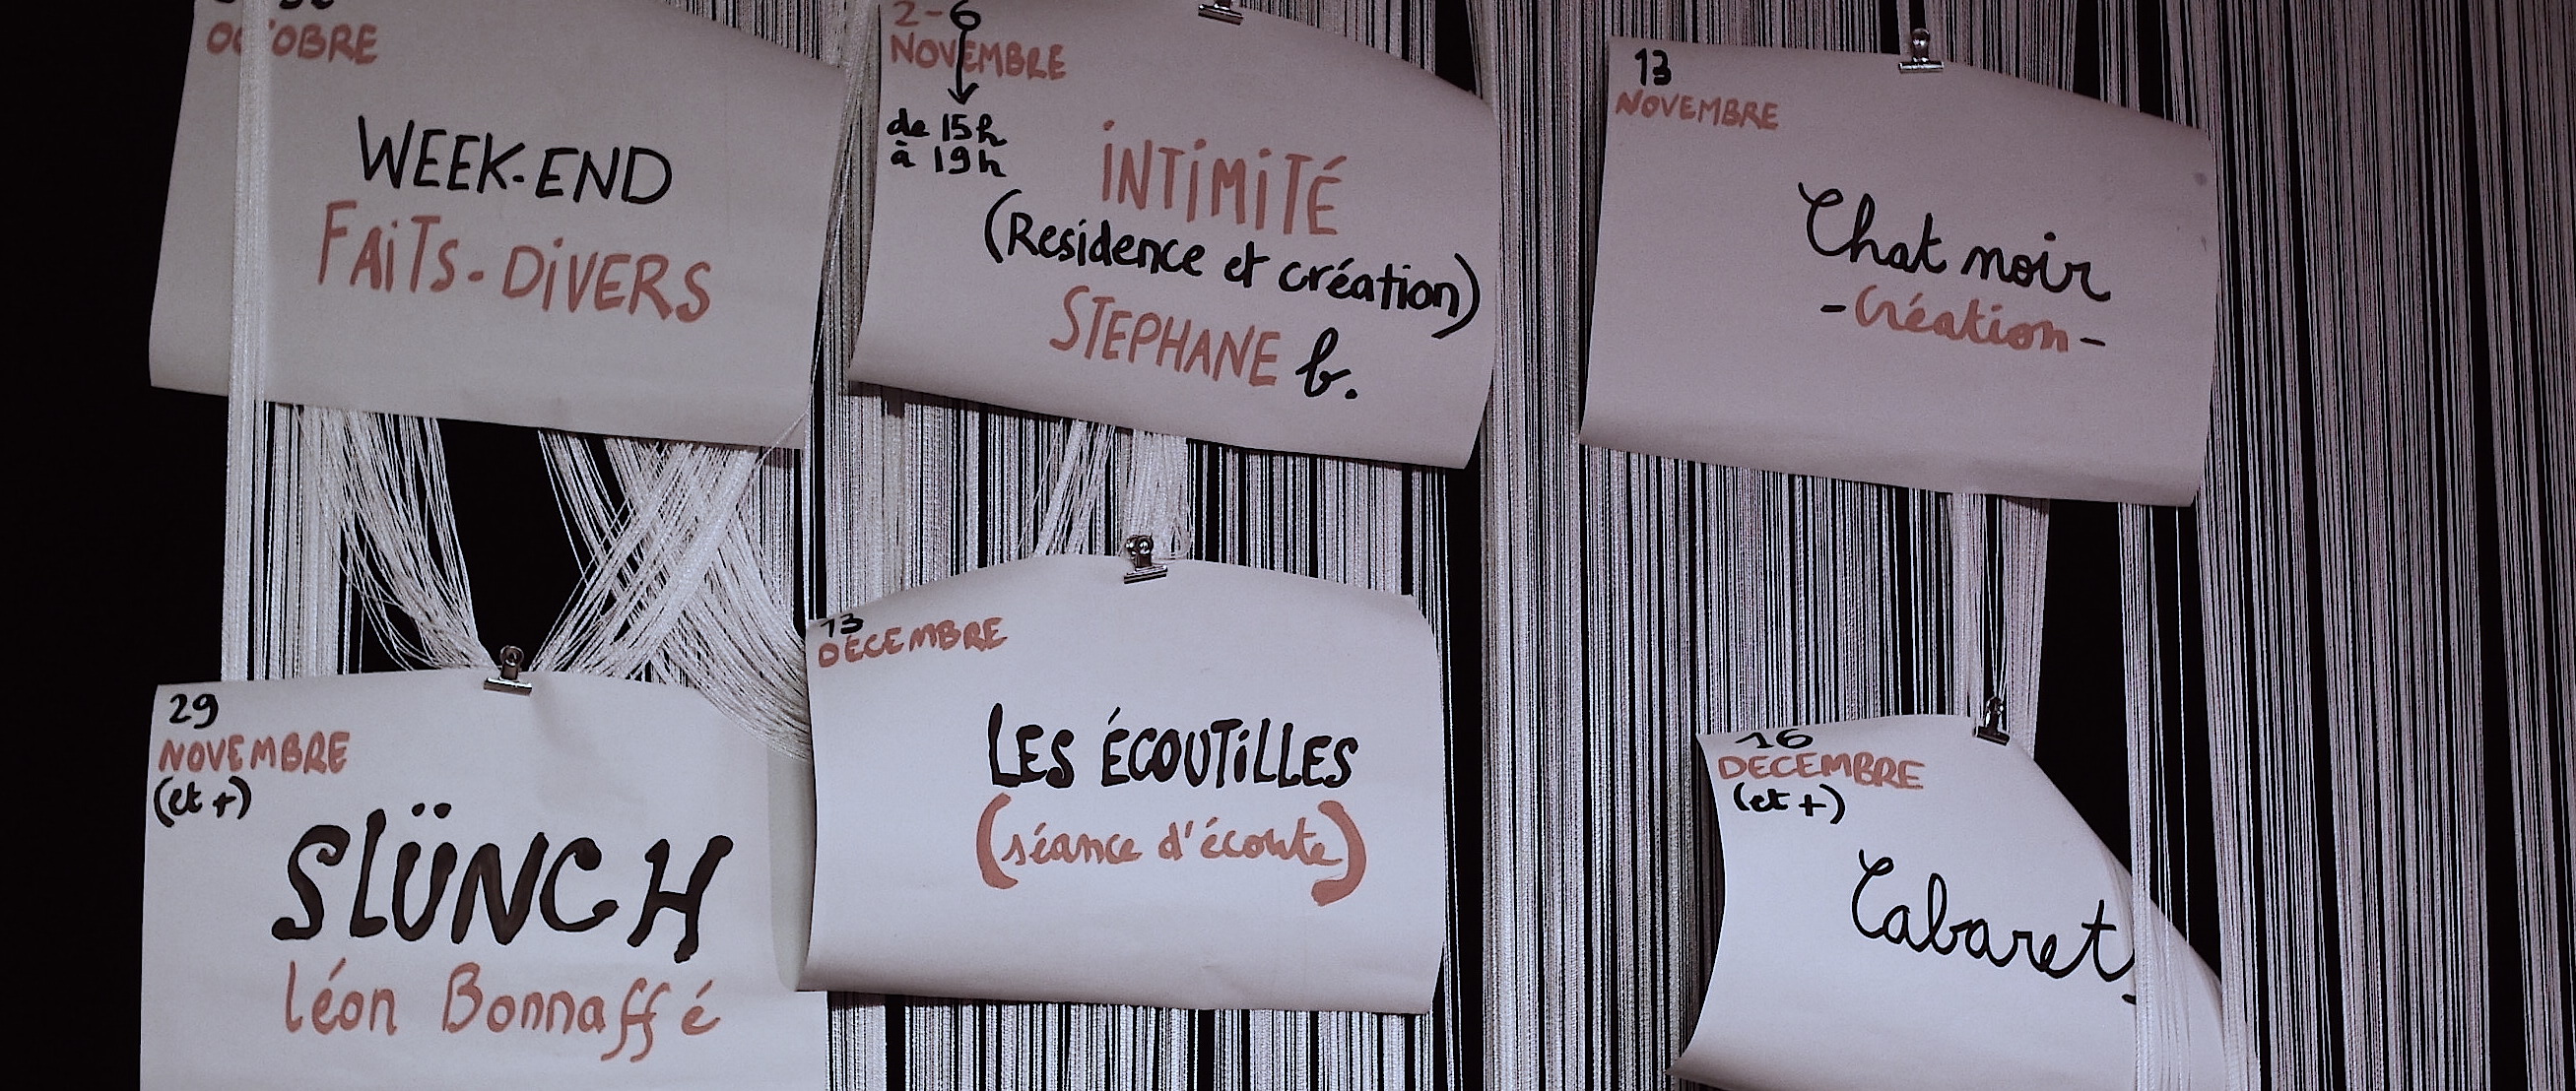 OCTOBRE
WEEK-END
FAiTS-DiVERS
2-6
NOVEMBRE
de 15h
à 19h
iNTiMiTÉ
(Residence et création)
STEPHANE b.
13
NOVEMBRE
Chat noir
-Création-
29
NOVEMBRE
(et +)
SLÜNCH
léon Bonnaffé
13
DECEMBRE
LES ÉCOUTiLLES
(séance d'écoute)
16
DECEMBRE
(et +)
Cabaret